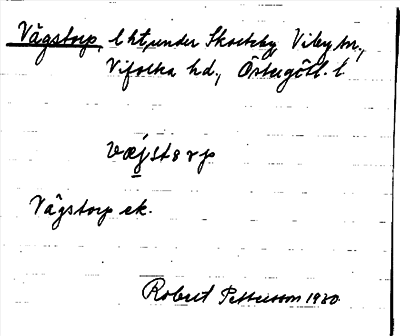 Vägstorp, lht under Skorteby, Viby sn,
Vifolka hd, Östergötl. l
væjstorp
Vägstorp ek.
Robert Pettersson 1930